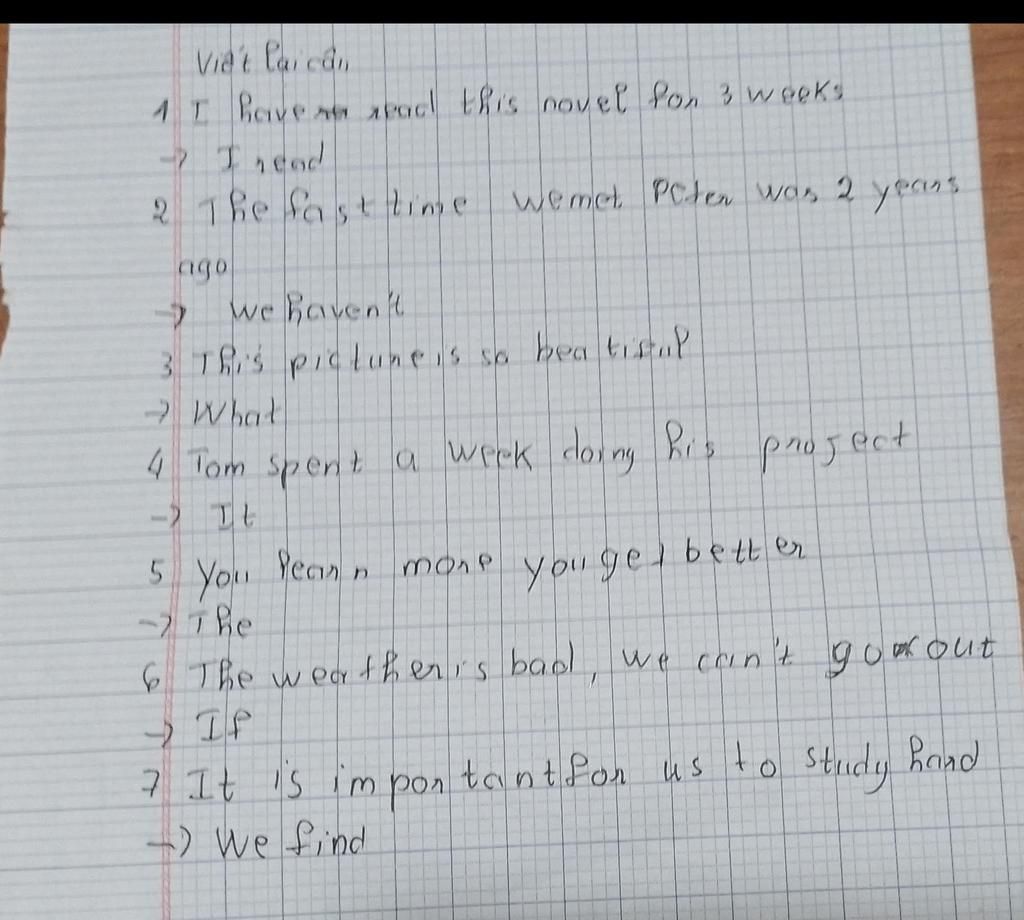 Viết lại câu
1 I have read this novel for 3 weeks
-> I read
2 The last time we met Peter was 2 years
ago
-> We haven't
3 This picture is so beatiful
-> What
4 Tom spent a week doing his project
-> It
5 You learn more you get better
-> The
6 The weather is bad, we can't go out
-> If
7 It is important for us to study hard
-> We find